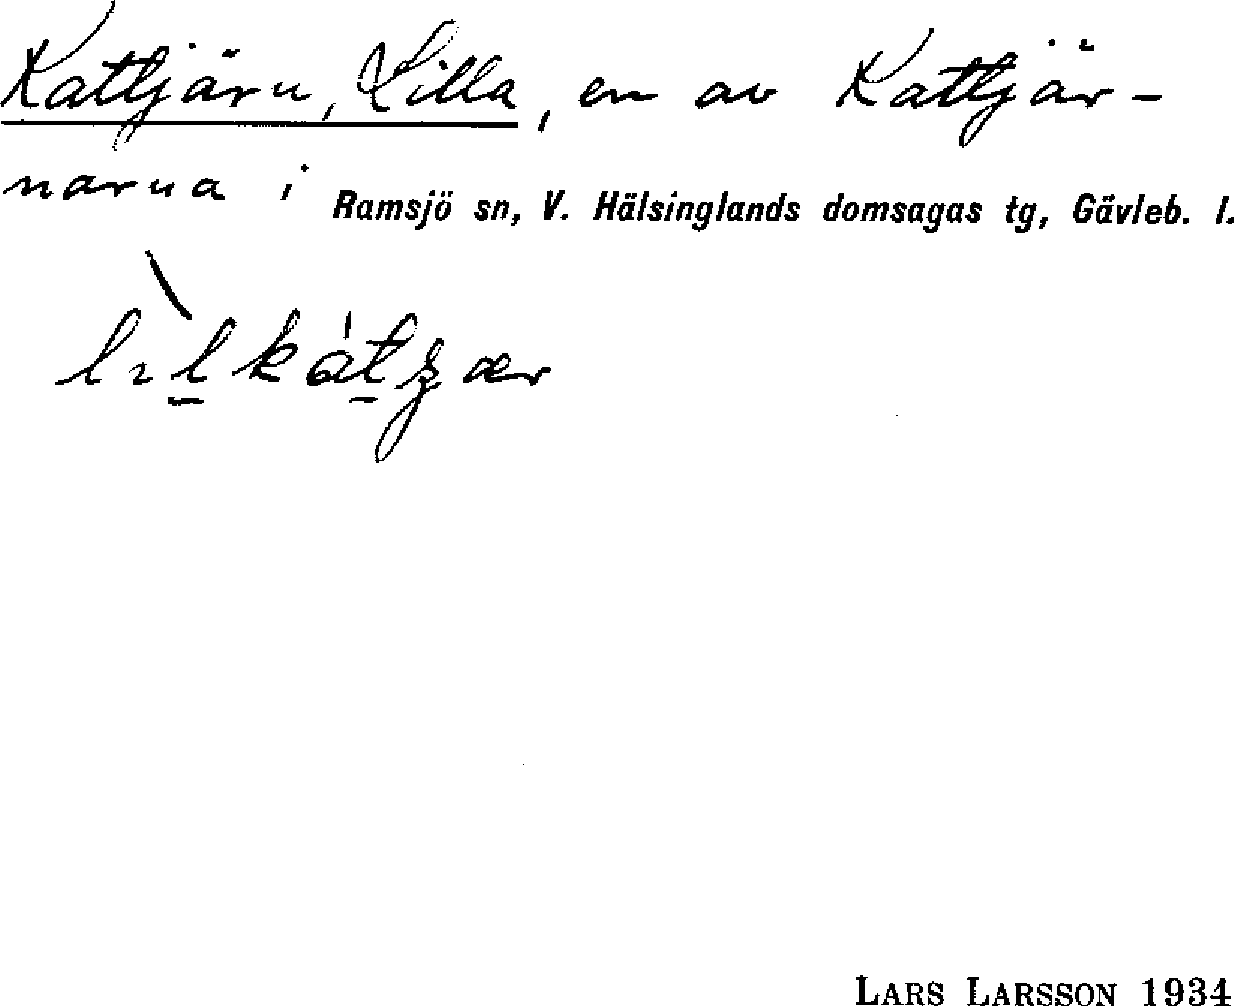 Kattjärn, Lilla, en av Kattjär-
narna i Ramsjö sn, V. Hälsinglands domsagas tg, Gävleb. l.
LARS LARSSON 1934